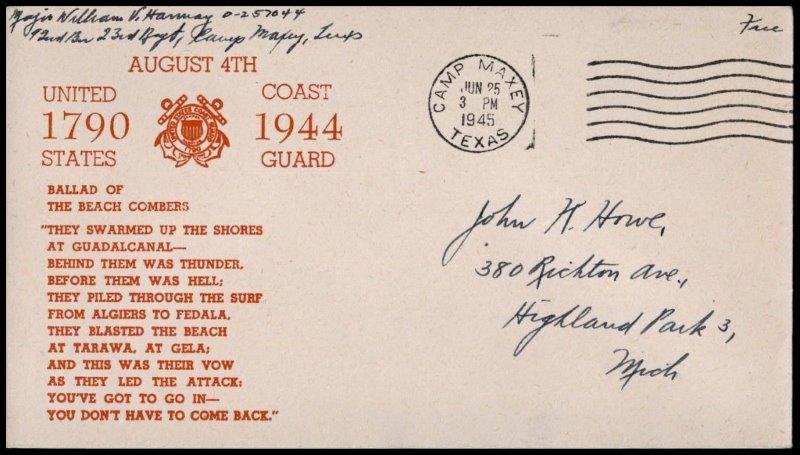 Major William V. Harmay O-257044
92nd Bn 23rd Regt, Camp Maxey, Texas
Free
AUGUST 4TH
UNITED COAST
1790 1944
STATES GUARD
CAMP MAXEY
JUN 25
3 PM
1945
TEXAS
BALLAD OF
THE BEACH COMBERS
"THEY SWARMED UP THE SHORES
AT GUADALCANAL—
BEHIND THEM WAS THUNDER,
BEFORE THEM WAS HELL;
THEY PILED THROUGH THE SURF
FROM ALGIERS TO FEDALA,
THEY BLASTED THE BEACH
AT TARAWA, AT GELA;
AND THIS WAS THEIR VOW
AS THEY LED THE ATTACK:
YOU'VE GOT TO GO IN—
YOU DON'T HAVE TO COME BACK."
John H. Howe,
380 Richton Ave.,
Highland Park 3,
Mich